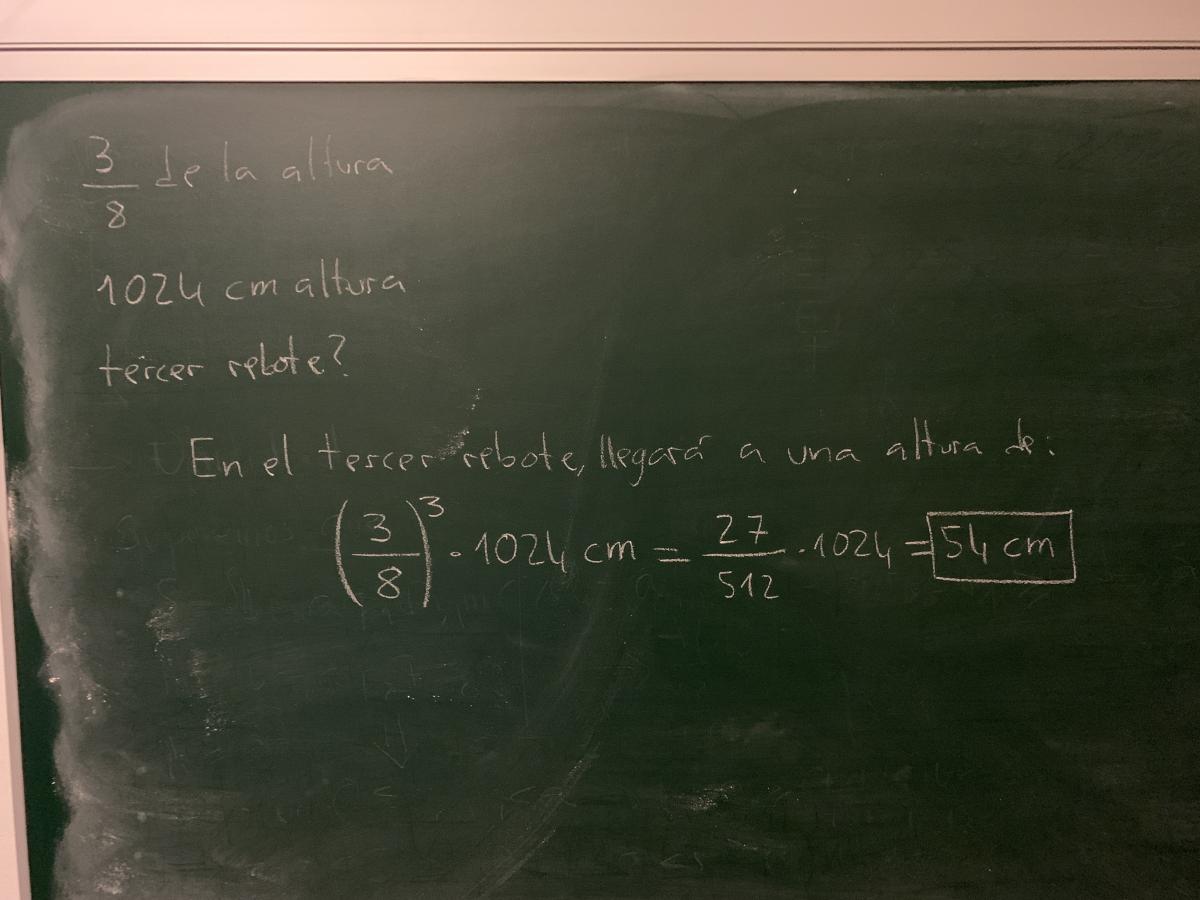 3/8 de la altura
1024 cm altura
tercer rebote?
En el tercer rebote, llegará a una altura de:
(3/8)³ · 1024 cm = 27/512 · 1024 = 54 cm